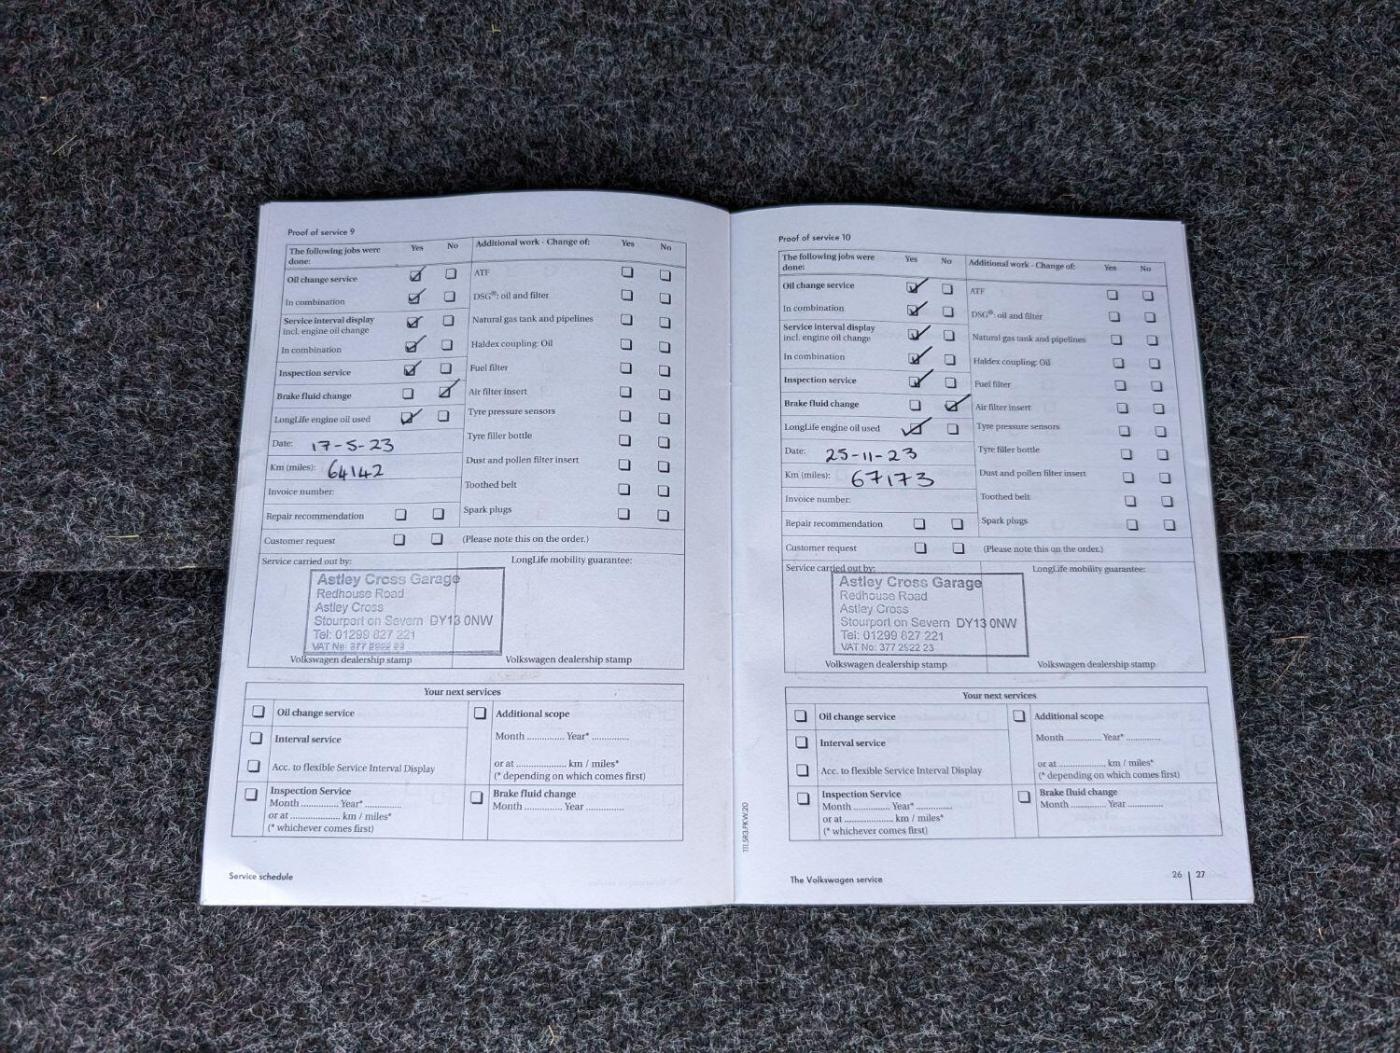 Proof of service 9
The following jobs were done: Yes No
Oil change service
In combination
Service interval display
incl. engine oil change
In combination
Inspection service
Brake fluid change
LongLife engine oil used
Date: 17-5-23
Km (miles): 64142
Invoice number:
Repair recommendation
Customer request
Additional work - Change of: Yes No
ATF
DSG®: oil and filter
Natural gas tank and pipelines
Haldex coupling: Oil
Fuel filter
Air filter insert
Tyre pressure sensors
Tyre filler bottle
Dust and pollen filter insert
Toothed belt
Spark plugs
(Please note this on the order.)
Service carried out by:
Astley Cross Garage
Redhouse Road
Astley Cross
Stourport on Severn DY13 0NW
Tel: 01299 827 221
VAT No: 377 2922 23
Volkswagen dealership stamp
LongLife mobility guarantee:
Volkswagen dealership stamp
Your next services
Oil change service
Interval service
Acc. to flexible Service Interval Display
Inspection Service
Month ............ Year* ............
or at .................. km / miles*
(* whichever comes first)
Additional scope
Month ............ Year* ............
or at .................. km / miles*
(* depending on which comes first)
Brake fluid change
Month ............ Year ............
Service schedule
Proof of service 10
The following jobs were done: Yes No
Oil change service
In combination
Service interval display
incl. engine oil change
In combination
Inspection service
Brake fluid change
LongLife engine oil used
Date: 25-11-23
Km (miles): 67173
Invoice number:
Repair recommendation
Customer request
Additional work - Change of: Yes No
ATF
DSG®: oil and filter
Natural gas tank and pipelines
Haldex coupling: Oil
Fuel filter
Air filter insert
Tyre pressure sensors
Tyre filler bottle
Dust and pollen filter insert
Toothed belt
Spark plugs
(Please note this on the order.)
Service carried out by:
Astley Cross Garage
Redhouse Road
Astley Cross
Stourport on Severn DY13 0NW
Tel: 01299 827 221
VAT No: 377 2922 23
Volkswagen dealership stamp
LongLife mobility guarantee:
Volkswagen dealership stamp
Your next services
Oil change service
Interval service
Acc. to flexible Service Interval Display
Inspection Service
Month ............ Year* ............
or at .................. km / miles*
(* whichever comes first)
Additional scope
Month ............ Year* ............
or at .................. km / miles*
(* depending on which comes first)
Brake fluid change
Month ............ Year ............
The Volkswagen service
26 | 27